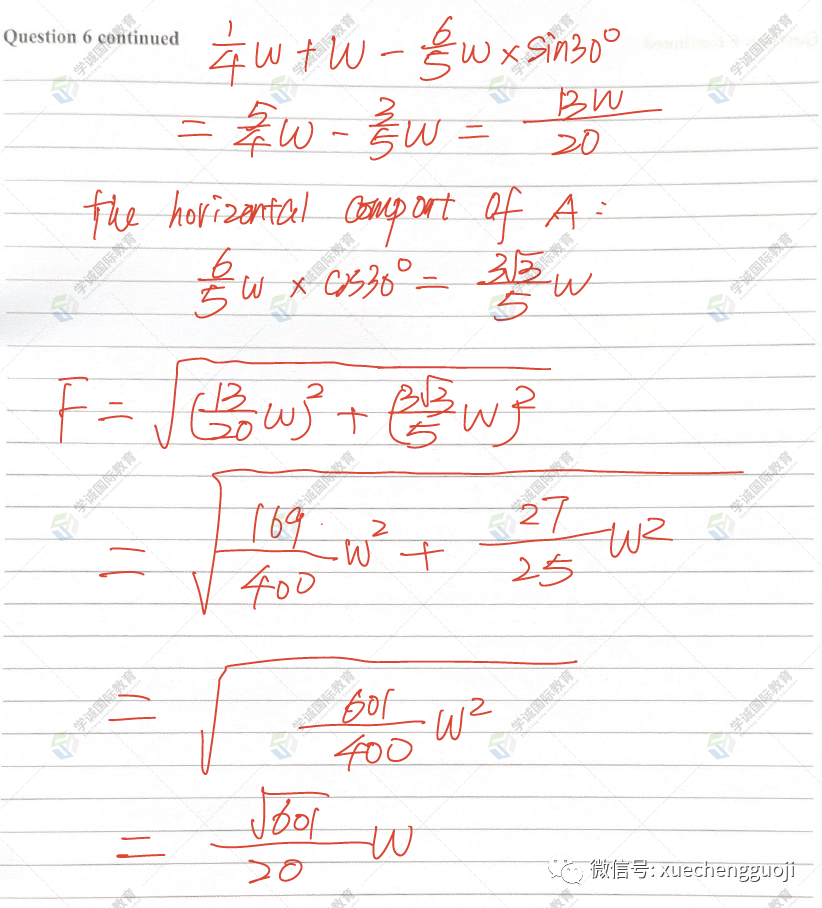 Question 6 continued
1/4 W + W - 6/5 W × sin30°
= 5/4 W - 3/5 W = 13W/20
the horizontal comport of A :
6/5 W × cos30° = 3√3/5 W
F = √((13/20 W)² + (3√3/5 W)²)
= √(169/400 W² + 27/25 W²)
= √(601/400 W²)
= √601/20 W
微信号: xuechengguoji
学诚国际教育